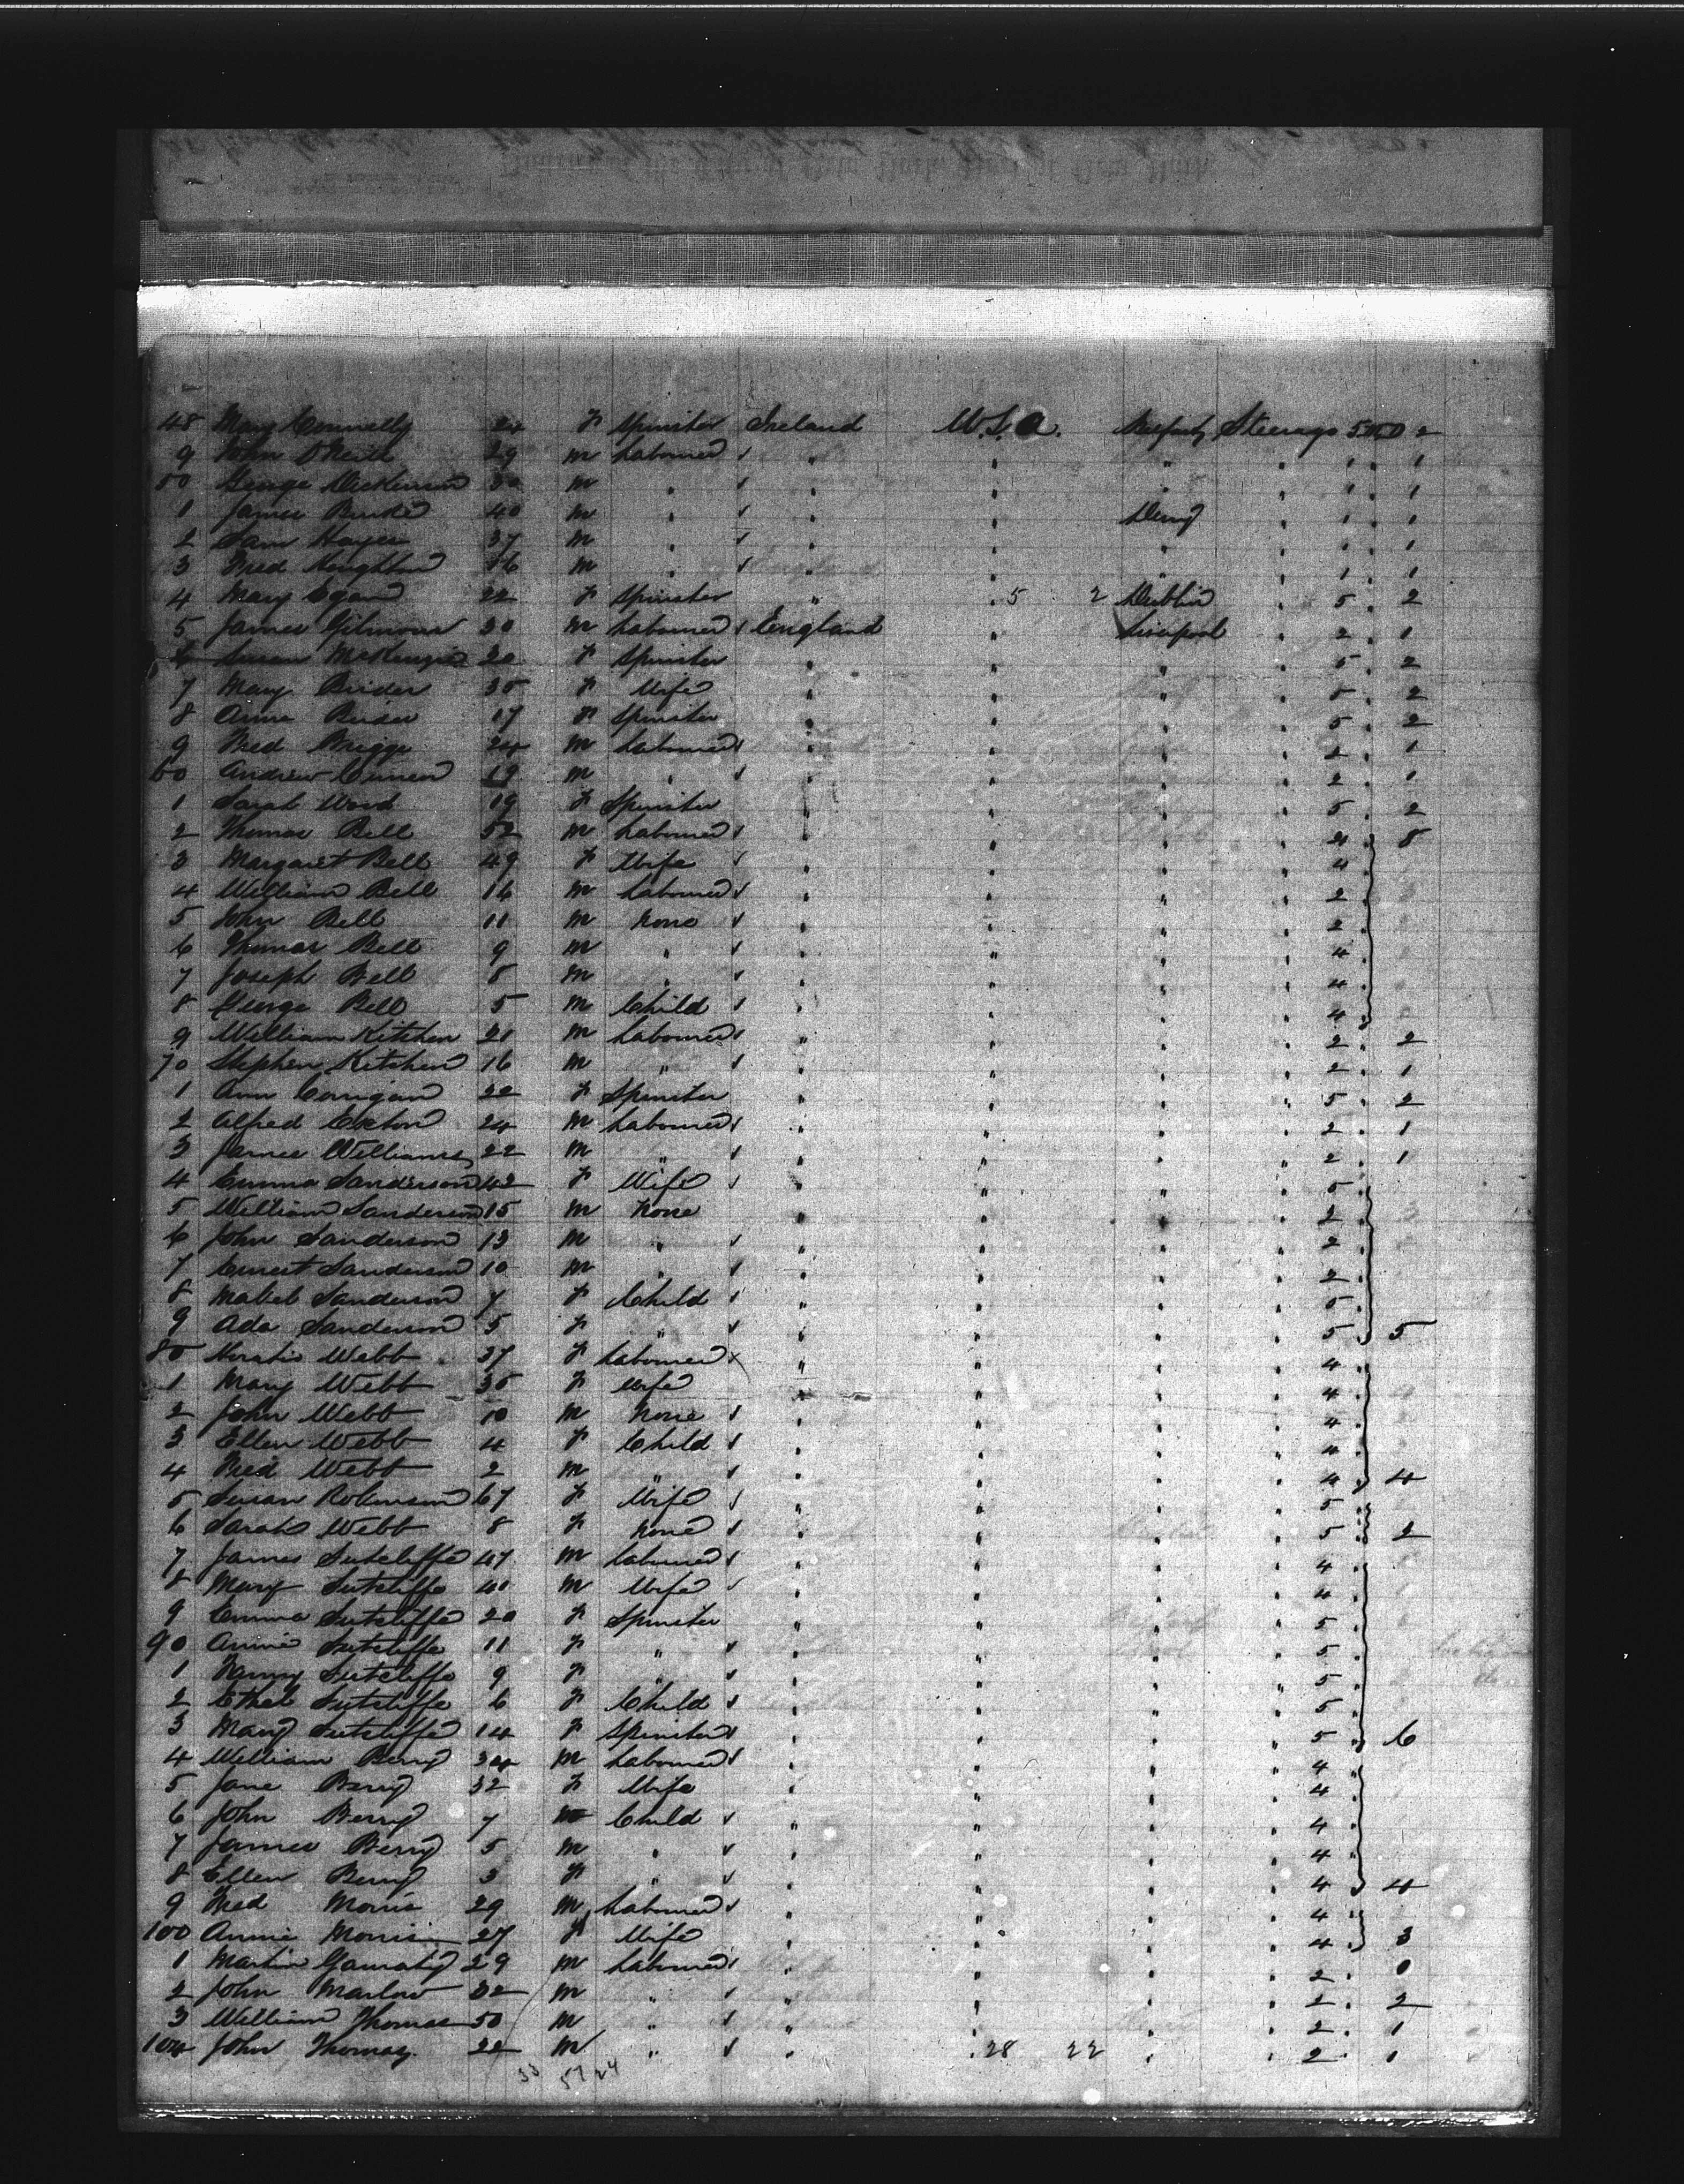 48 Mary Connelly 22 F Spinster Ireland U.S.A. Belfast Steerage 5 2
9 John O'Neill 29 M Labourer " " " " 1 1
50 George Dickinson 30 M " " " " " 1 1
1 James Burke 40 M " " " Derry " 1 1
2 Sam Hayes 37 M " " " " " 1 1
3 Fred Houghton 16 M " " " " " 1 1
4 Mary Egan 22 F Spinster " " 5 2 Dublin " 5 2
5 James Gilmour 30 M Labourer England " Liverpool " 2 1
6 Susan McKenzie 20 F Spinster " " " " 5 2
7 Mary Binder 35 F Wife " " " " 5 2
8 Anna Binder 17 F Spinster " " " " 5 2
9 Fred Briggs 24 M Labourer " " " " 2 1
60 Andrew Curren 19 M " " " " " 2 1
1 Sarah Wood 19 F Spinster " " " " 5 2
2 Thomas Bell 52 M Labourer " " " " 4 8
3 Margaret Bell 49 F Wife " " " " 4
4 William Bell 16 M Labourer " " " " 2
5 John Bell 11 M None " " " " 2
6 Thomas Bell 9 M " " " " " 4
7 Joseph Bell 8 M " " " " " 4
8 George Bell 5 M Child " " " " 4
9 William Kitchen 21 M Labourer " " " " 2 2
70 Stephen Kitchen 16 M " " " " " 2 1
1 Ann Corrigan 22 F Spinster " " " " 5 2
2 Alfred Exton 24 M Labourer " " " " 2 1
3 James Williams 22 M " " " " " 2 1
4 Emma Sanderson 42 F Wife " " " " 5
5 William Sanderson 15 M None " " " " 2
6 John Sanderson 13 M " " " " " 2
7 Ernest Sanderson 10 M " " " " " 2
8 Mabel Sanderson 7 F Child " " " " 5
9 Ada Sanderson 5 F " " " " " 5 5
80 Horatio Webb 37 F Labourer " " " " 4
1 Mary Webb 35 F Wife " " " " 4
2 John Webb 10 M None " " " " 4
3 Ellen Webb 4 F Child " " " " 4
4 Fred Webb 2 M " " " " " 4 4
5 Susan Robinson 67 F Wife " " " " 5
6 Sarah Webb 8 F None " " " " 5 2
7 James Sutcliffe 47 M Labourer " " " " 4
8 Mary Sutcliffe 40 M Wife " " " " 4
9 Emma Sutcliffe 20 F Spinster " " " " 5
90 Annie Sutcliffe 11 F " " " " " 5
1 Fanny Sutcliffe 9 F " " " " " 5
2 Ethel Sutcliffe 6 F Child " " " " 5
3 Mary Sutcliffe 14 F Spinster " " " " 5 6
4 William Berry 34 M Labourer " " " " 4
5 Jane Berry 32 F Wife " " " " 4
6 John Berry 7 M Child " " " " 4
7 James Berry 5 M " " " " " 4
8 Ellen Berry 3 F " " " " " 4 4
9 Fred Morris 29 M Labourer " " " " 4
100 Annie Morris 27 F Wife " " " " 4 3
1 Martin 29 M Labourer " " " " 2 0
2 John Marlow 32 M " " " " " 2 2
3 William Thomas 50 M " " " " " 2 1
104 John Thomas 22 M " " " 28 22 " " 2 1
33 57 24